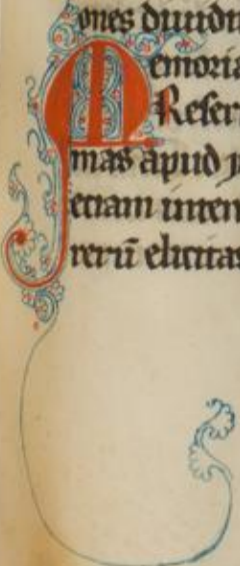 ones diuidu
Memoria
Refer
mas apud p
etiam inten
rerū elicitas